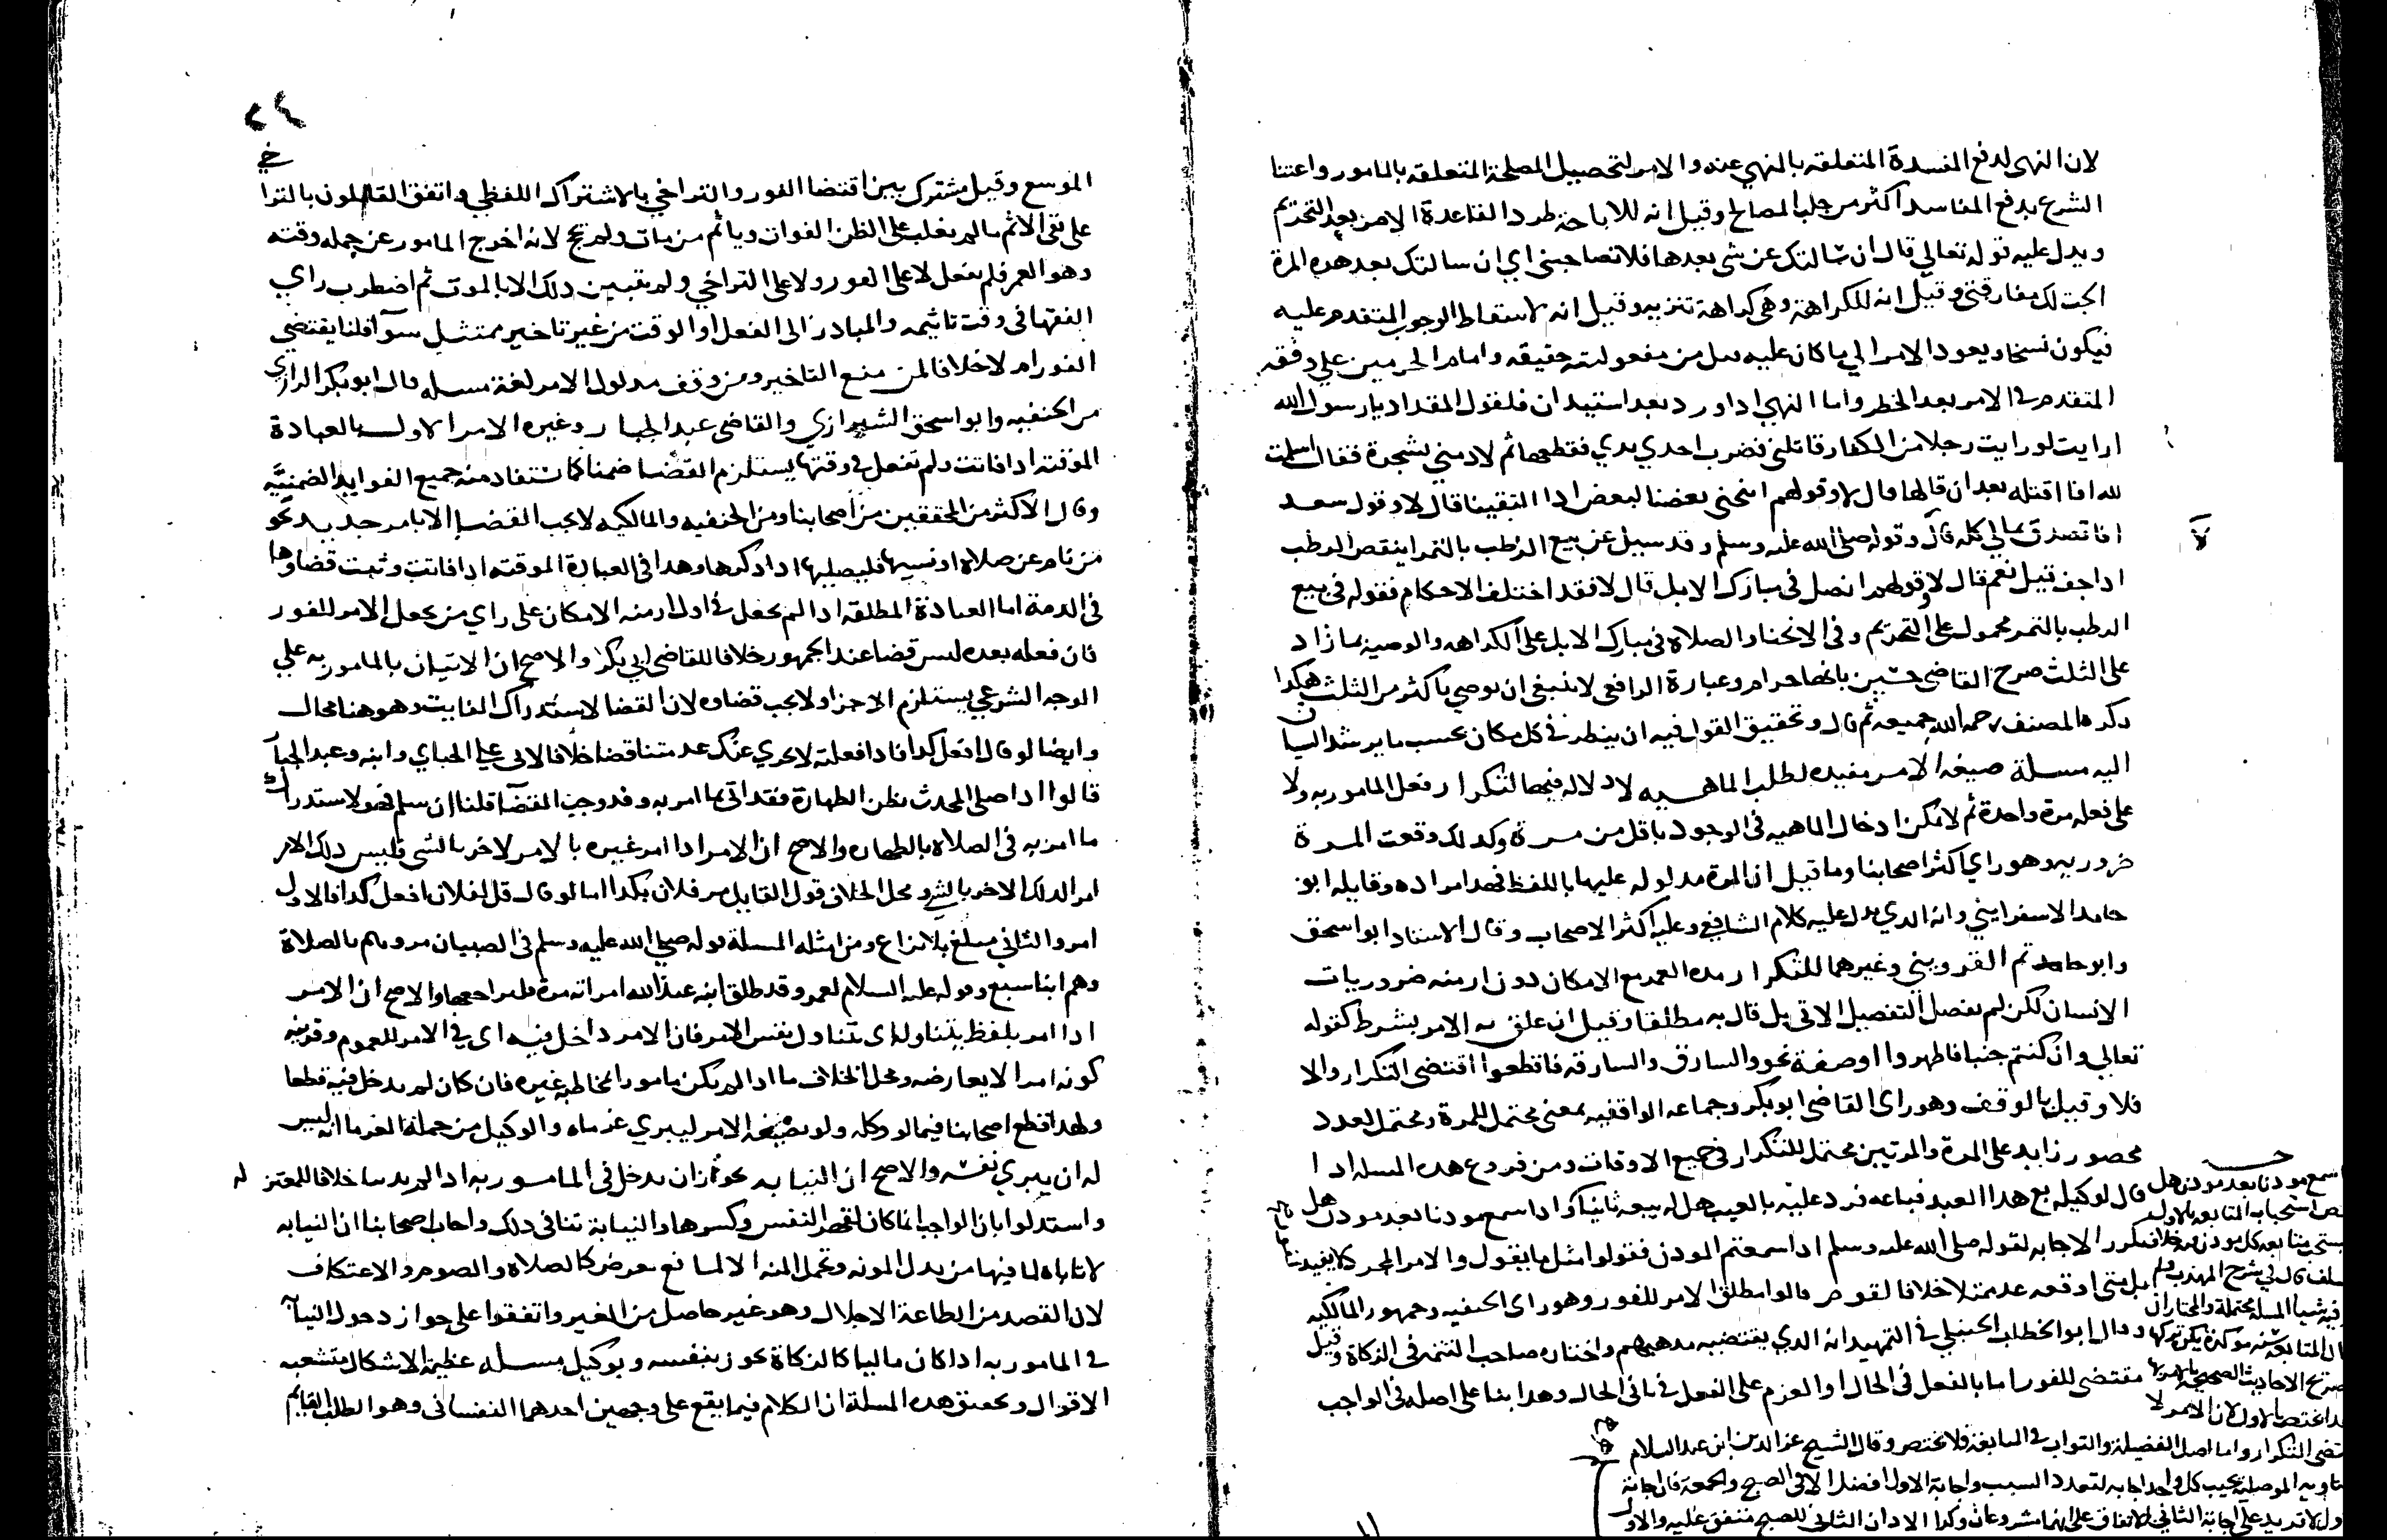 لان النهى لدفع المفسدة المتعلقه بالنهي عنه والامر لتحصيل المصلحة المتعلقه بالمامور واعتنا
الشرع بدفع المفاسد اكثر من جلب المصالح وقيل انه للاباحة طرد القاعدة الامر بعد التحريم
ويدل عليه قوله تعالي قال ان سالتك عن شى بعدها فلا تصاحبنى اي ان سالتك بعد هده المرة
الجت لك مفارقتى وقيل انه للكراهة وهى كراهة تنزيه وقيل انه لاسقاط الوجوب المتقدم عليه
فيكون نسخا ويعود الامر الي ما كان عليه من حقيقه وامام الحرمين علي وقفه
المتقدم في الامر بعد الخطر واما النهي ادا ورد بعد استيدان فلقول المقداد يا رسول الله
ارايت لو رايت رجلا من الكفار قاتلنى فضرب احدي يدي فقطعها ثم لاد مني بشجرة فقال اسلمت
لله افا اقتله بعد ان قالها قال لا وقولهم اينحنى بعضنا لبعض ادا التقينا قال لا وقول سعد
افا تصدق بمالي كله قال لا وقوله صلى الله عليه وسلم وقد سيل عن بيع الرطب بالتمر اينقص الرطب
ادا جف قيل نعم قال لا وقولهم انصل فى مبارك الابل قال لا فقد اختلف الاحكام فقوله فى بيع
الرطب بالتمر محمول على التحريم وفى الانحنا والصلاة فى مبارك الابل على الكراهه والوصية بما زاد
على الثلث صرح القاضى حسين بانها حرام وعبارة الرافعى لا ينبغى ان يوصي باكثر من الثلث هكدا
دكره المصنف رحمه الله جميعه ثم قال وتحقيق القول فيه ان ينظر فى كل مكان بحسب ما يرشد البيان
اليه مسلة صيغه الامر مفيده لطلب الماهيه لا دلاله فيها لتكرار فعل المامور به ولا
على فعله مرة واحدة ثم لا يمكن ادخال الماهيه فى الوجود باقل من مرة وكدلك وقعت المرة
ضروريه وهو راي اكثر اصحابنا وما قيل ان المرة مدلوله عليها باللفظ فهدا مراده وقايله ابو
حامد الاسفرايني وانه الدي يدل عليه كلام الشافعي وعليه اكثر الاصحاب وقال الاستاد ابو اسحق
وابو حاتم القزويني وغيرهما للتكرار مده العمر مع الامكان دون ازمنه ضروريات
الانسان لكن لم يفصل التفصيل الاتى بل قال به مطلقا وقيل ان علق به الامر بشرط كقوله
تعالي وان كنتم جنبا فاطهروا او صفة نحو والسارق والسارقه فاقطعوا اقتضى التكرار والا
فلا وقيل بالوقف وهو راى القاضى ابو بكر وجماعه الواقفيه بمعنى محتمل للمرة ومحتمل لعدد
محصور زايد على المرة والمرتين محتمل للتكرار فى جميع الاوقات ومن فروع هده المسله ادا
قال لوكيله بع هدا العبد فباعه فرد عليه بالعيب هل له بيعه ثانيا وكدا ادا سمع مودنا بعد مودن هل
تكرر الاجابه لقوله صلى الله عليه وسلم ادا سمعتم المودن فقولوا مثل ما يقول والامر المجرد لا يفيدنا
بل متى اوقعه عد ممتثلا خلافا لقوم قالوا مطلق الامر للفور وهو راى الحنفيه وجمهور المالكيه
وقال ابو الخطاب الحنبلي فى التمهيد انه الدي يقتضيه مدهبهم واختاره صاحب التتمه فى الزكاة وقيل
مقتضى للفور اما بالفعل فى الحال او العزم على الفعل فى ثانى الحال وهدا بنا على اصله فى الواجب
سمع مودنا بعد مودن هل
استحباب المتابعه بالاول
يستحب متابعه كل مودن فيه خلاف
سلف قال في شرح المهدب ولم
فيه شيا المسله محتملة والمختار ان
المتابعه سنه موكده يكره تركها
صريح الاحاديث الصحيحة بالامر بها
يختص بالاول لان الامر لا
التكرار واما اصل الفضيلة والثواب فى المتابعة فلا يختص وقال الشيخ عز الدين ابن عبد السلام
الموصليه يجيب كل واحد اجابه لتعدد السبب واجابة الاول افضل الا فى الصبح والجمعة فان اجابة
الاول لا تزيد على اجابة الثاني للاتفاق على انهما مشروعان وكدا الادان الثانى للصبح متفق عليه والاول
٢٤
الموسع وقيل مشترك بين اقتضا الفور والتراخي بالاشتراك اللفظي واتفق القايلون بالتراخي
على نفى الاثم ما لم يغلب على الظن الفوات وياثم من مات ولم يحج لانه اخرج المامور عن جمله وقته
وهو العمر فلم يفعل لا على الفور ولا على التراخي ولم يتبين دلك الا بالموت ثم اضطرب راي
الفقها فى وقت تاثيمه والمبادر الى الفعل او الوقت من غير تاخير ممتثل سوآ قلنا يقتضي
الفور ام لا خلافا لمن منع التاخير ومن وقف مدلول الامر لغة مسله قال ابو بكر الرازي
من الحنفيه وابو اسحق الشيرازي والقاضى عبد الجبار وغيره الامر الاول بالعبادة
الموقته ادا فاتت ولم تفعل فى وقتها يستلزم القضا ضمنا كما تستفاد منه جميع الفوايد الضمنيه
وقال الاكثر من المحققين من اصحابنا ومن الحنفيه والمالكيه لا يجب القضا الا بامر جديد نحو
من نام عن صلاة او نسيها فليصليها ادا دكرها وهدا فى العبادة الموقته ادا فاتت وثبت قضاوها
فى الدمة اما العبادة المطلقه ادا لم يفعل فى اول ازمنه الامكان على راي من يجعل الامر للفور
فان فعله بعده ليس قضا عند الجمهور خلافا للقاضى ابي بكر والاصح ان الاتيان بالمامور به على
الوجه الشرعي يستلزم الاجزا ولا يجب قضاوه لان القضا لاستدراك الفايت وهو هنا محال
وايضا لو قال افعل كدا فادا فعلته لا يجزي عنك عد متناقضا خلافا لابى علي الجباي وابنه وعبد الجبار
قالوا ادا صلى المحدث بظن الطهارة فقد اتى بما امر به وقد وجب القضآ قلنا ان سلم فهو لاستدراك
ما امر به فى الصلاه بالطهاره والاصح ان الامر ادا امر غيره بالامر لاخر بالشى فليس دلك الامر
امر الدلك الاخر بالشي ومحل الخلاف قول القايل مر فلان بكدا اما لو قال قل لفلان افعل كدا فالاول
امر والثاني مبلغ بلا نزاع ومن امثله المسلة قوله صلي الله عليه وسلم فى الصبيان مروهم بالصلاة
وهم ابنا سبع وقوله عليه السلام لعمر وقد طلق ابنه عبد الله امراته مره فليراجعها والاصح ان الامر
ادا امر بلفظ يتناوله اى يتناول نفس الامر فان الامر داخل فيه اى فى الامر للعموم وقرينه
كونه امرا لا يعارضه ومحل الخلاف ما ادا لم يكن مامورا لمخاطبه غيره فان كان لم يدخل فيه قطعا
ولهدا قطع اصحابنا فيما لو وكله ولو بصيغه الامر ليبري غرماه والوكيل من جملة الغرما انه ليس
له ان يبري نفسه والاصح ان النيابه يجوز ان يدخل فى المامور به ادا لم يمنع خلافا للمعتزله
واستدلوا بان الواجب انما كان لقهر النفس وكسرها والنيابة تنافى دلك واجاب اصحابنا ان النيابه
لا تاباه لما فيها من بدل المونه وتحمل المنه الا لمانع كالصلاة والصوم والاعتكاف
لان القصد من الطاعة الاجلال وهو غير حاصل من الغير واتفقوا على جواز دخول النيابة
فى المامور به ادا كان ماليا كالزكاة يجوز بنفسه وبوكيل مسله عظيمة الاشكال متشعبه
الاقوال وتحقيق هده المسلة ان الكلام فيما يقع على وجهين احدهما النفسانى وهو الطلب القايم